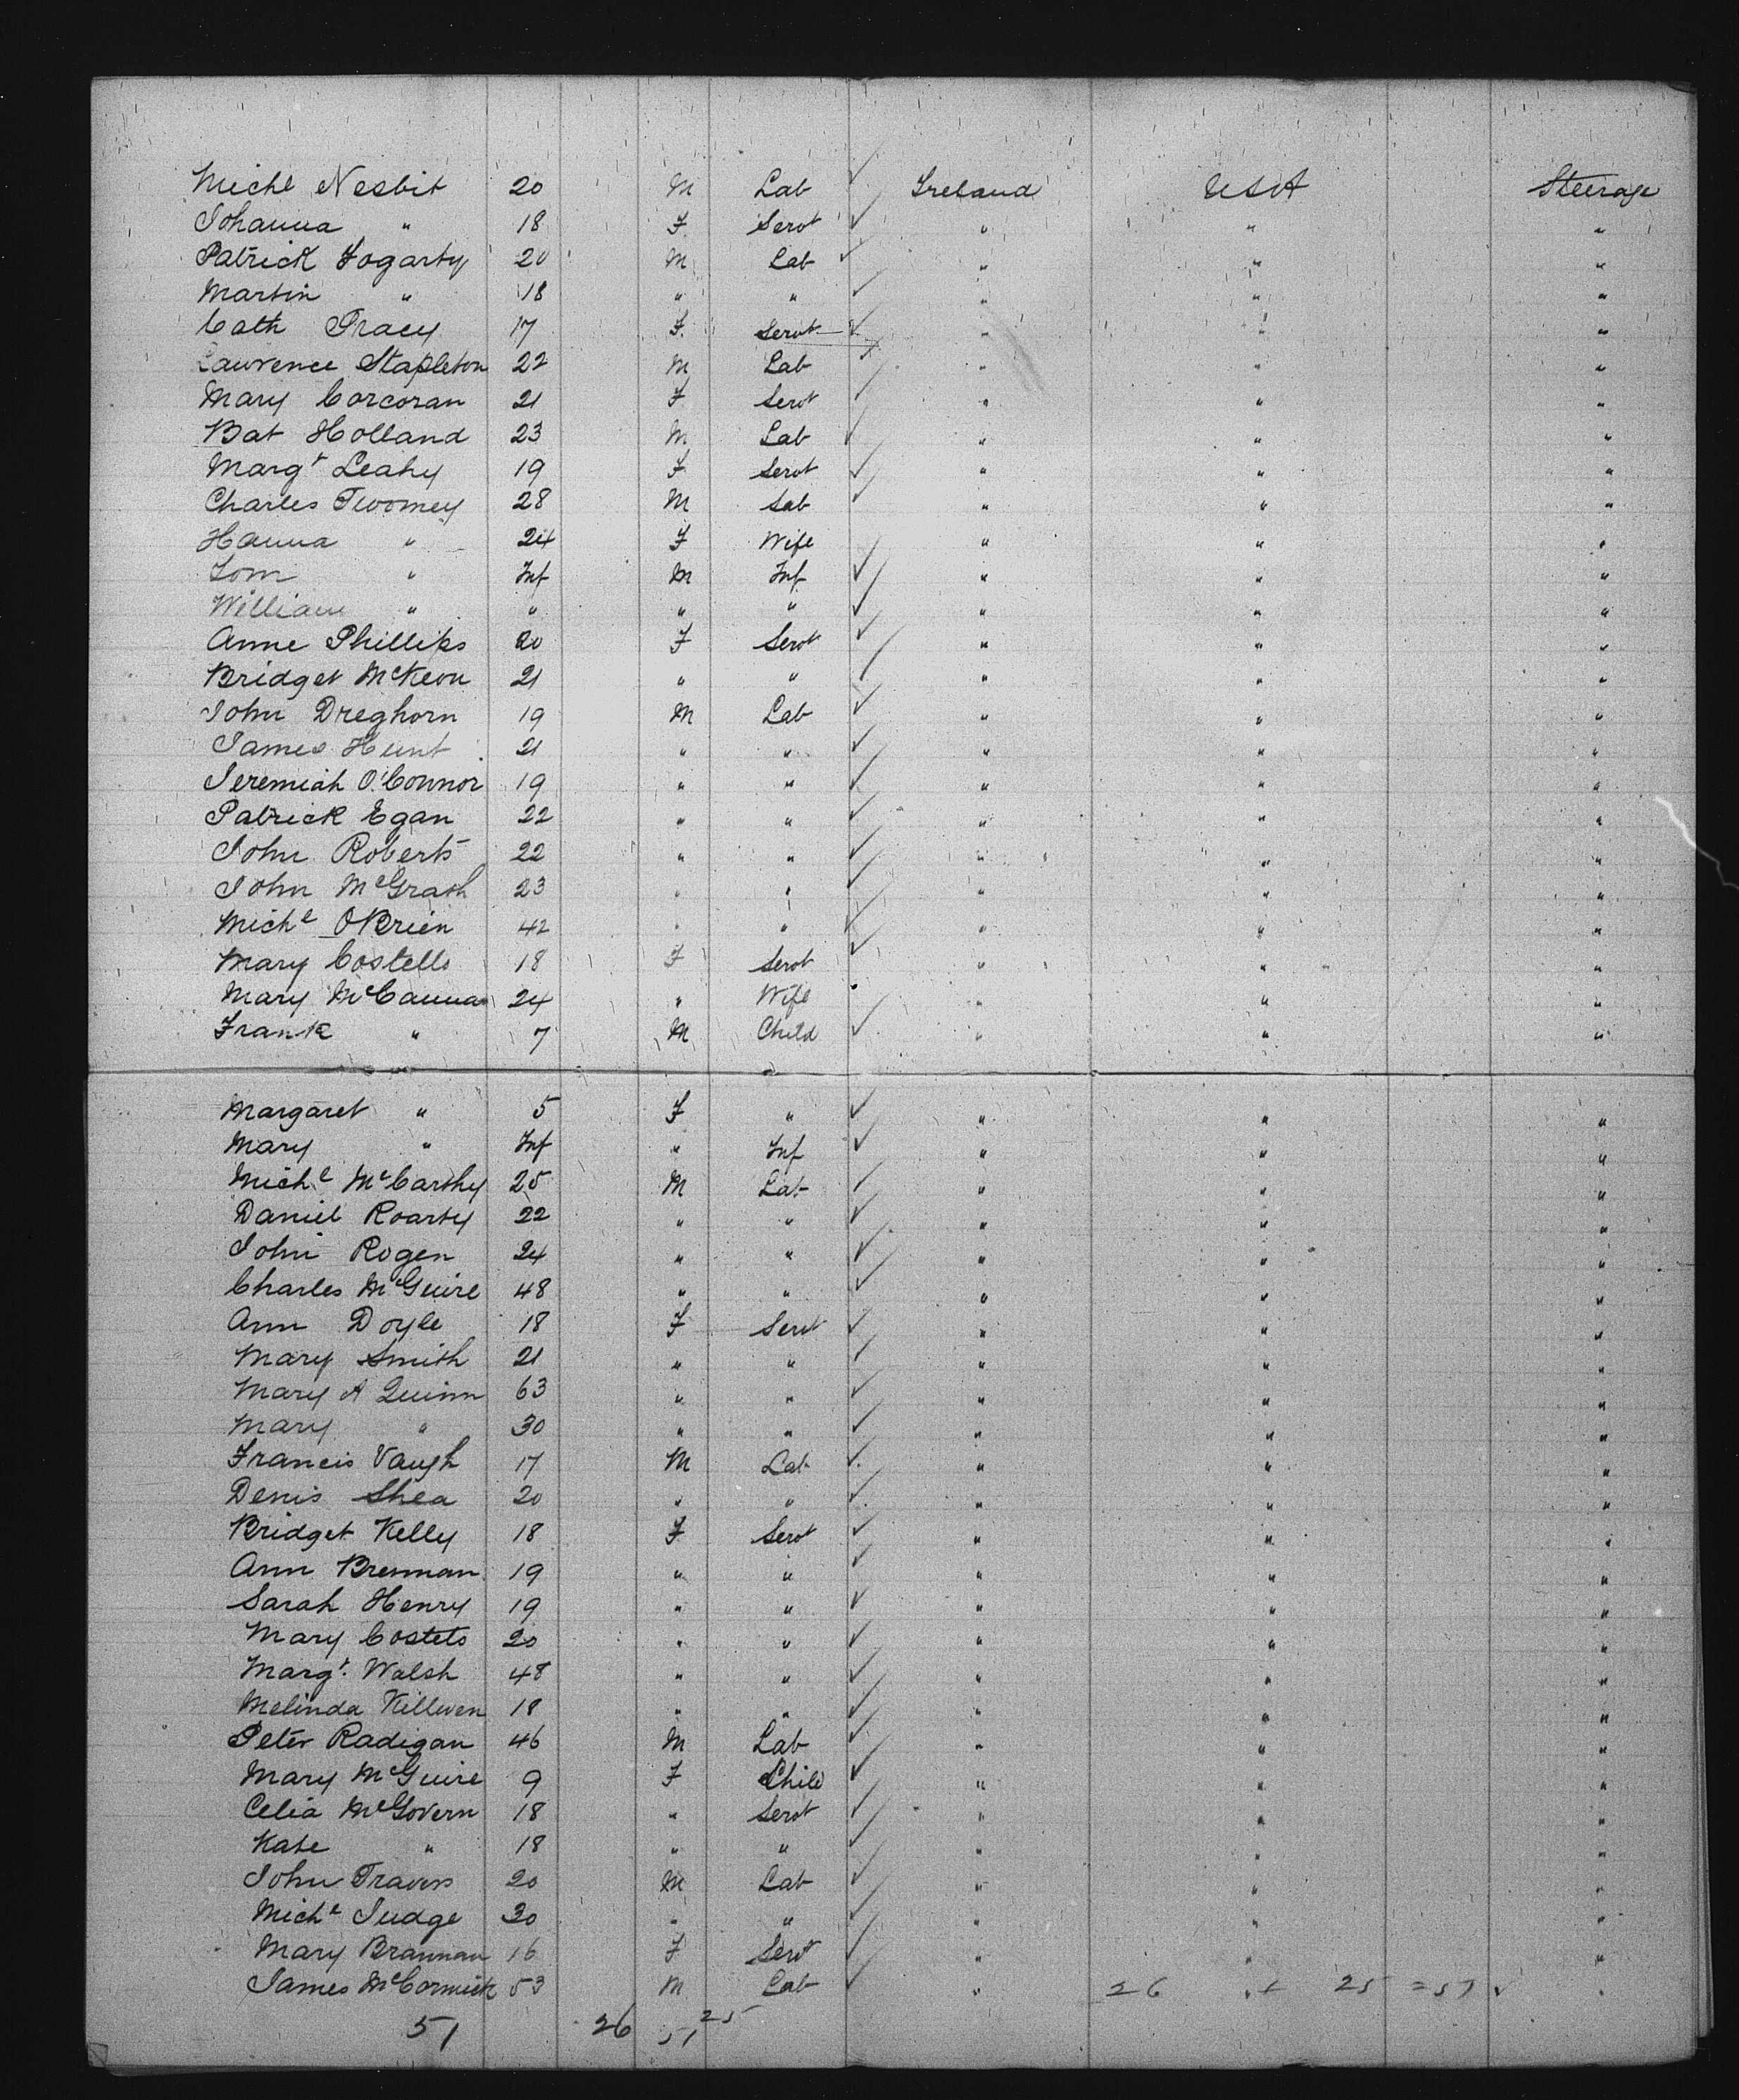 Michl Nesbit 20 M Lab Ireland USA Steerage
Johanna " 18 F Servt " " "
Patrick Fogarty 20 M Lab " " "
Martin " 18 " " " " "
Cath Tracy 17 F Servt " " "
Lawrence Stapleton 22 M Lab " " "
Mary Corcoran 21 F Servt " " "
Bat Holland 23 M Lab " " "
Margt Leahy 19 F Servt " " "
Charles Twomey 28 M Lab " " "
Hanna " 24 F Wife " " "
Tom " Inf M Inf " " "
William " " " " " " "
Anne Phillips 20 F Servt " " "
Bridget McKeon 21 " " " " "
John Dreghorn 19 M Lab " " "
James Hunt 21 " " " " "
Jeremiah O'Connor 19 " " " " "
Patrick Egan 22 " " " " "
John Roberts 22 " " " " "
John McGrath 23 " " " " "
Michl OBrien 42 " " " " "
Mary Costello 18 F Servt " " "
Mary McCanna 24 " Wife " " "
Frank " 7 M Child " " "
Margaret " 5 F " " " "
Mary " Inf " Inf " " "
Michl McCarthy 25 M Lab " " "
Daniel Roarty 22 " " " " "
John Rogen 24 " " " " "
Charles McGuire 48 " " " " "
Ann Doyle 18 F Servt " " "
Mary Smith 21 " " " " "
Mary A Quinn 63 " " " " "
Mary " 30 " " " " "
Francis Vaugh 17 M Lab " " "
Denis Shea 20 " " " " "
Bridget Kelly 18 F Servt " " "
Ann Brennan 19 " " " " "
Sarah Henry 19 " " " " "
Mary Costelo 20 " " " " "
Margt. Walsh 48 " " " " "
Melinda Killwen 18 " " " " "
Peter Radigan 46 M Lab " " "
Mary McGuire 9 F Child " " "
Celia McGovern 18 " Servt " " "
Kate " 18 " " " " "
John Travers 20 M Lab " " "
Michl Judge 30 " " " " "
Mary Brannan 16 F Servt " " "
James McCormick 53 M Lab " 26 + 25 = 51 "
51 26 51 25